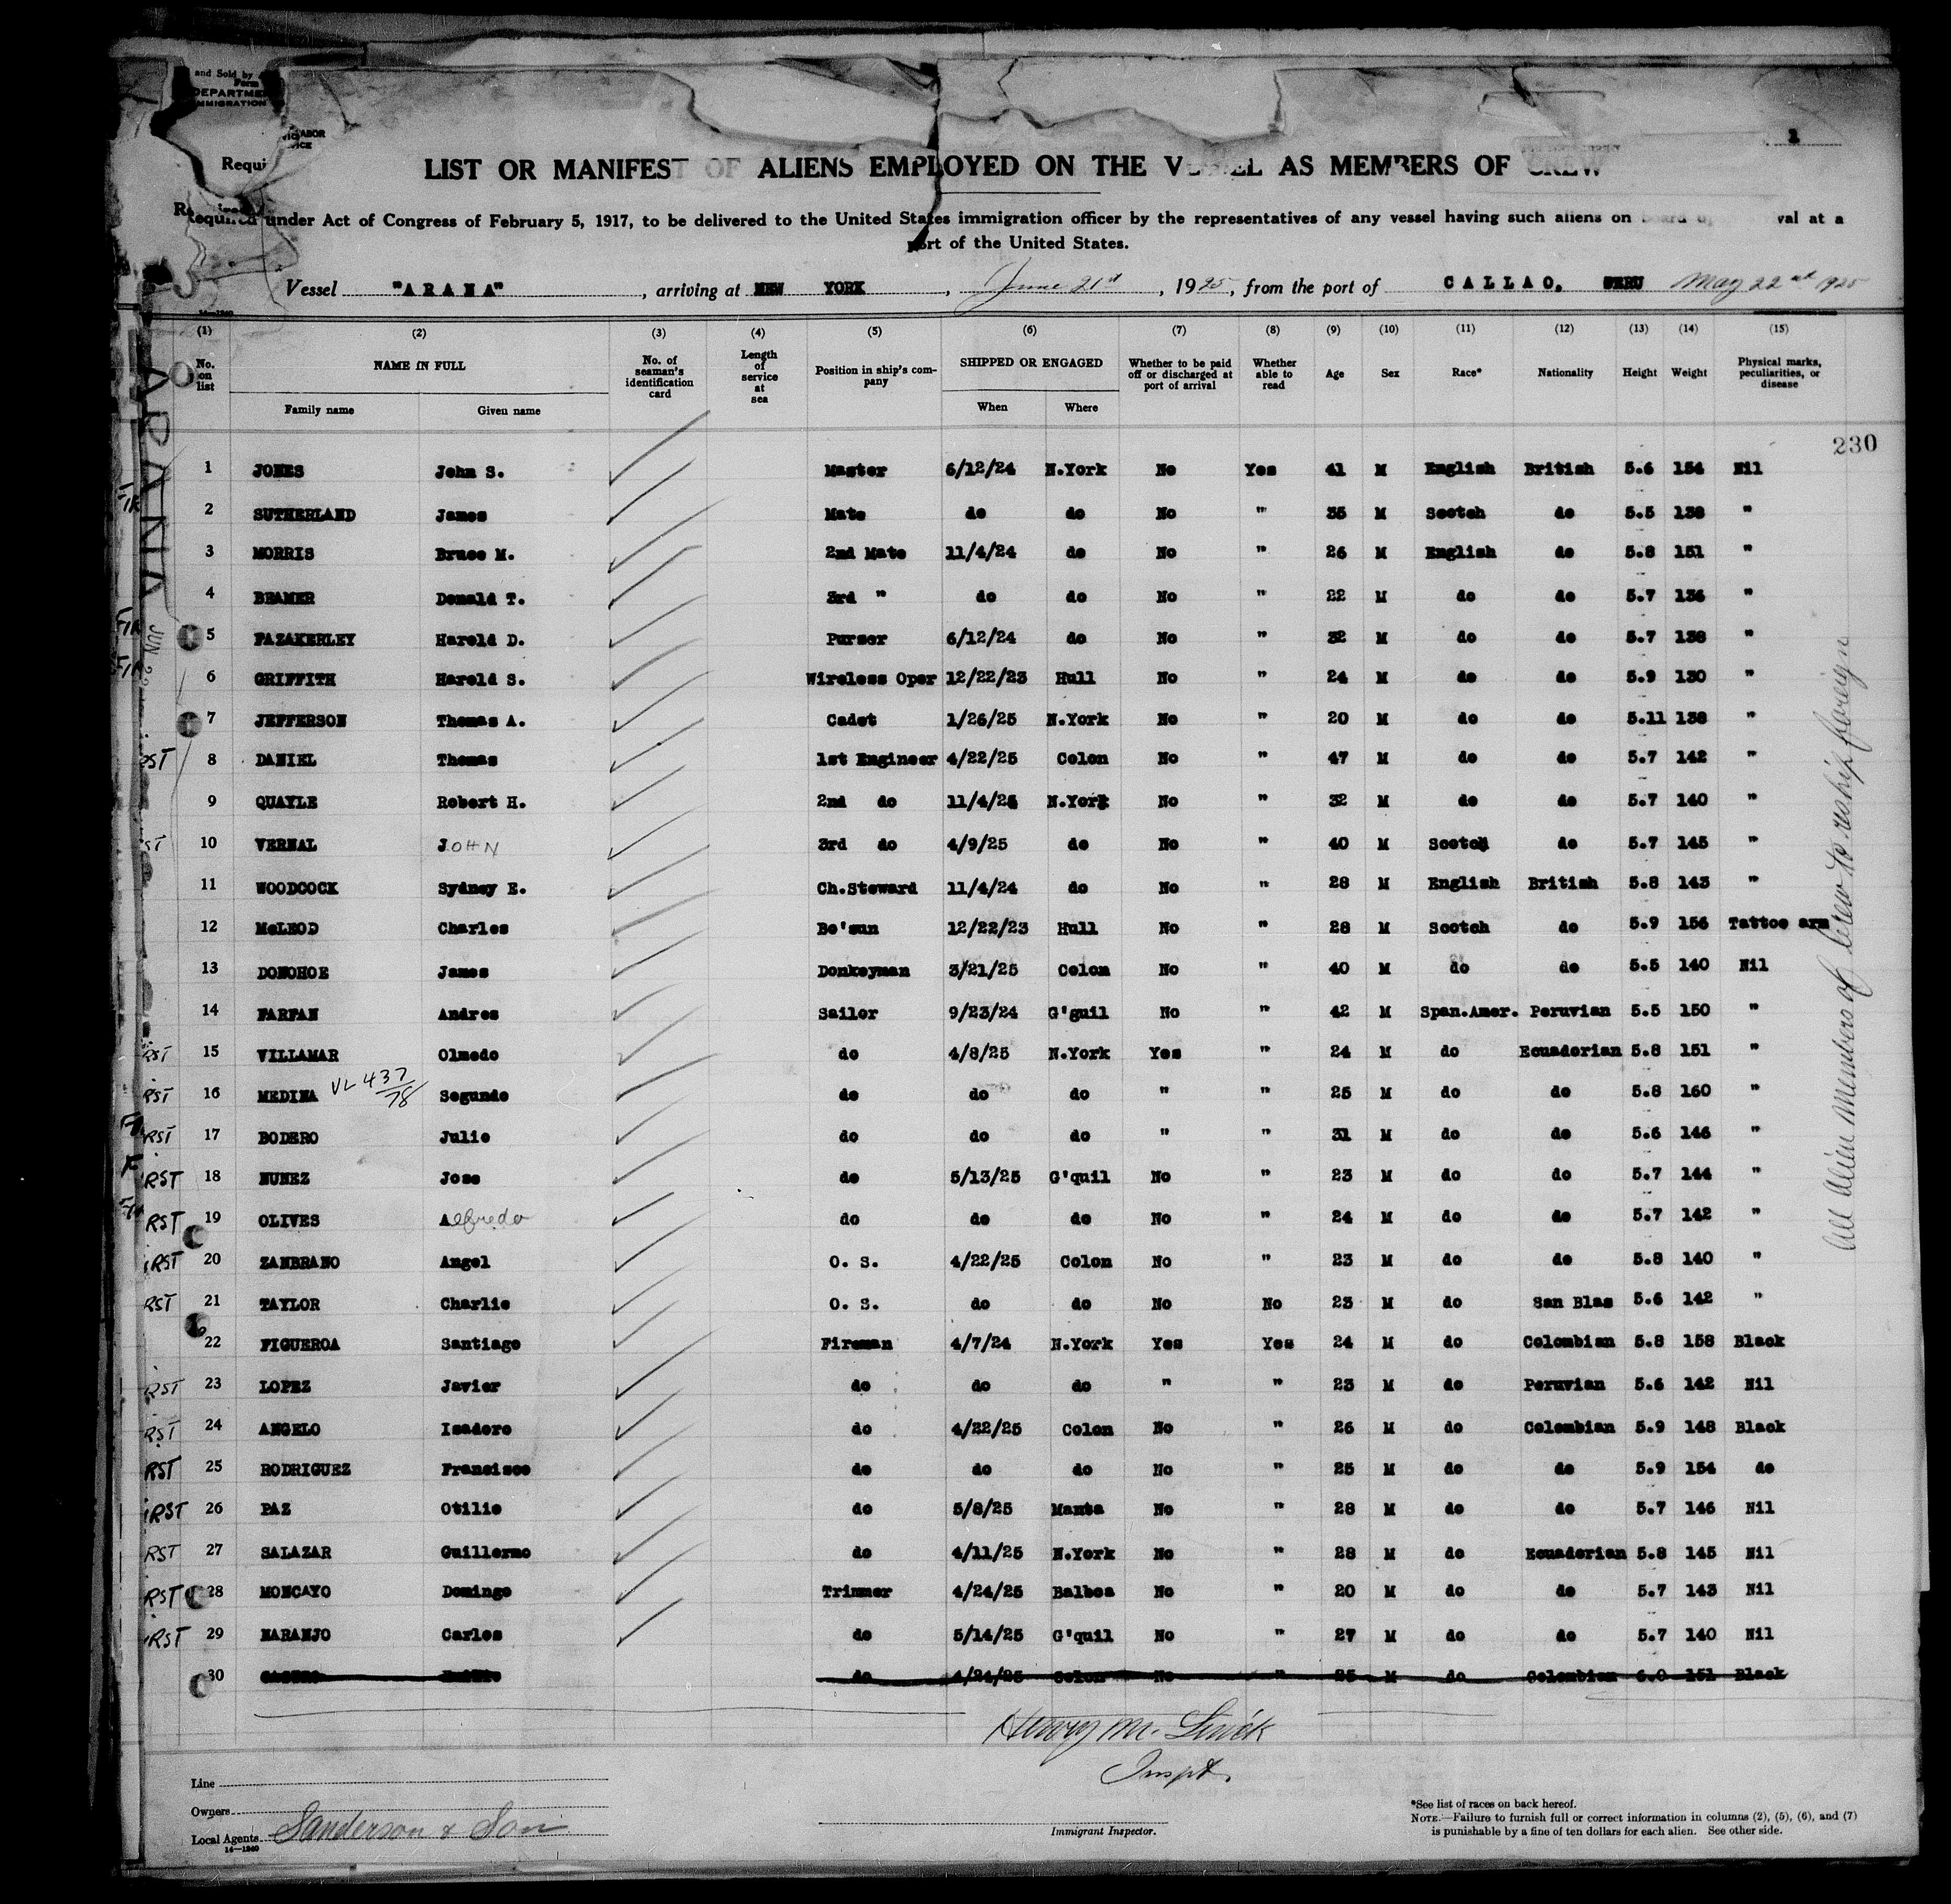 and Sold by
Form
DEPARTME
IMMIGRATION
ABOR
ICE
Requi
1
LIST OR MANIFEST OF ALIENS EMPLOYED ON THE VESSEL AS MEMBERS OF CREW
Required under Act of Congress of February 5, 1917, to be delivered to the United States immigration officer by the representatives of any vessel having such aliens on board val at a
port of the United States.
Vessel "ARANA", arriving at NEW YORK, June 21st, 1925, from the port of CALLAO, PERU May 22nd 1925
(1) (2) (3) (4) (5) (6) (7) (8) (9) (10) (11) (12) (13) (14) (15)
No. on list NAME IN FULL No. of seaman's identification card Length of service at sea Position in ship's company SHIPPED OR ENGAGED Whether to be paid off or discharged at port of arrival Whether able to read Age Sex Race* Nationality Height Weight Physical marks, peculiarities, or disease
Family name Given name When Where
230
ARANA JUN 22
1 JONES John S. Master 6/12/24 N.York No Yes 41 M English British 5.6 154 Nil
2 SUTHERLAND James Mate do do No " 35 M Scotch do 5.5 138 "
3 MORRIS Bruce M. 2nd Mate 11/4/24 do No " 26 M English do 5.8 151 "
4 BEAMER Donald T. 3rd " do do No " 22 M do do 5.7 136 "
5 FAZAKERLEY Harold D. Purser 6/12/24 do No " 32 M do do 5.7 138 "
6 GRIFFITH Harold S. Wireless Oper 12/22/23 Hull No " 24 M do do 5.9 130 "
7 JEFFERSON Thomas A. Cadet 1/26/25 N.York No " 20 M do do 5.11 138 "
8 DANIEL Thomas 1st Engineer 4/22/25 Colon No " 47 M do do 5.7 142 "
9 QUAYLE Robert H. 2nd do 11/4/24 N.York No " 32 M do do 5.7 140 "
10 VERNAL JOHN 3rd do 4/9/25 do No " 40 M Scotch do 5.7 145 "
11 WOODCOCK Sydney E. Ch.Steward 11/4/24 do No " 28 M English British 5.8 143 "
12 McLEOD Charles Bo'sun 12/22/23 Hull No " 28 M Scotch do 5.9 156 Tattoo arm
13 DONOHOE James Donkeyman 3/21/25 Colon No " 40 M do do 5.5 140 Nil
14 FARFAN Andres Sailor 9/23/24 G'guil No " 42 M Span.Amer. Peruvian 5.5 150 "
RST 15 VILLAMAR Olmedo do 4/8/25 N.York Yes " 24 M do Ecuadorian 5.8 151 "
RST 16 MEDINA VL 437/78 Segundo do do do " " 25 M do do 5.8 160 "
RST 17 BODERO Julio do do do " " 31 M do do 5.6 146 "
RST 18 NUNEZ Jose do 5/13/25 G'quil No " 23 M do do 5.7 144 "
RST 19 OLIVES Alfredo do do do No " 24 M do do 5.7 142 "
RST 20 ZAMBRANO Angel O. S. 4/22/25 Colon No " 23 M do do 5.8 140 "
RST 21 TAYLOR Charlie O. S. do do No No 23 M do San Blas 5.6 142 "
22 FIGUEROA Santiago Fireman 4/7/24 N.York Yes Yes 24 M do Colombian 5.8 158 Black
RST 23 LOPEZ Javier do do do " " 23 M do Peruvian 5.6 142 Nil
RST 24 ANGELO Isadore do 4/22/25 Colon No " 26 M do Colombian 5.9 148 Black
RST 25 RODRIGUEZ Francisco do do do No " 25 M do do 5.9 154 do
RST 26 PAZ Otilio do 5/8/25 Manta No " 28 M do do 5.7 146 Nil
RST 27 SALAZAR Guillermo do 4/11/25 N.York No " 28 M do Ecuadorian 5.8 145 Nil
RST 28 MONCAYO Domingo Trimmer 4/24/25 Balboa No " 20 M do do 5.7 143 Nil
RST 29 NARANJO Carlos do 5/14/25 G'quil No " 27 M do do 5.7 140 Nil
30 do 4/24/25 Colon No " 25 M do Colombian 6.0 151 Black
All Alien Members of Crew to reship foreign
Henry M.
Inspt.
Line
Owners
Local Agents Sanderson & Son
14—1240
Immigrant Inspector.
*See list of races on back hereof.
NOTE.—Failure to furnish full or correct information in columns (2), (5), (6), and (7)
is punishable by a fine of ten dollars for each alien. See other side.